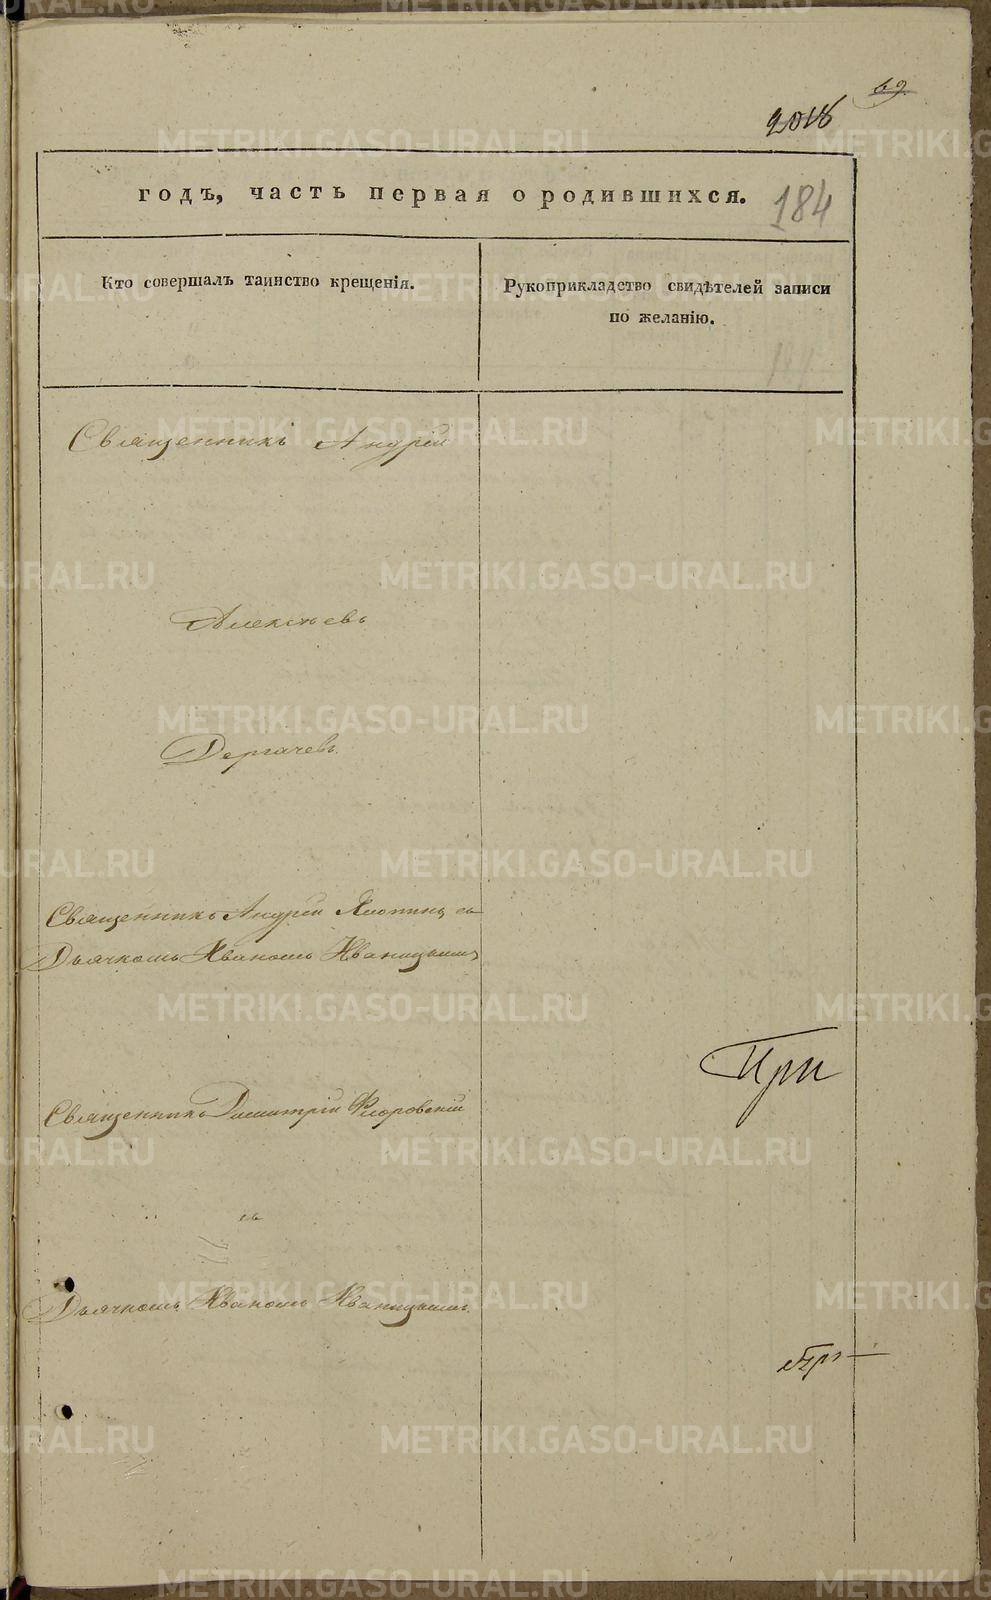 69
184
годъ, часть первая о родившихся.
Кто совершалъ таинство крещенія.
Рукоприкладство свидѣтелей записи
по желанію.
Священникъ Андрей
Алексѣевъ
Дергачевъ.
Священникъ Андрей съ
Дьячкомъ Иваномъ Иваницкимъ
При
Священникъ Димитрій Флоровскій
съ
Дьячкомъ Иваномъ Иваницкимъ.
METRIKI.GASO-URAL.RU